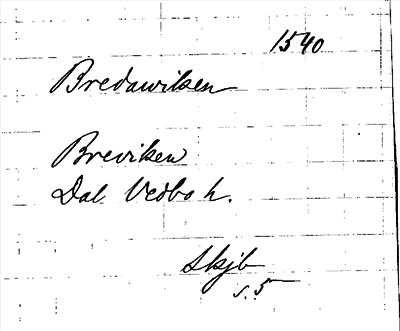 1540
Bredawiken
Breviken
Dal Vedbo h.
Skjb
s. 5